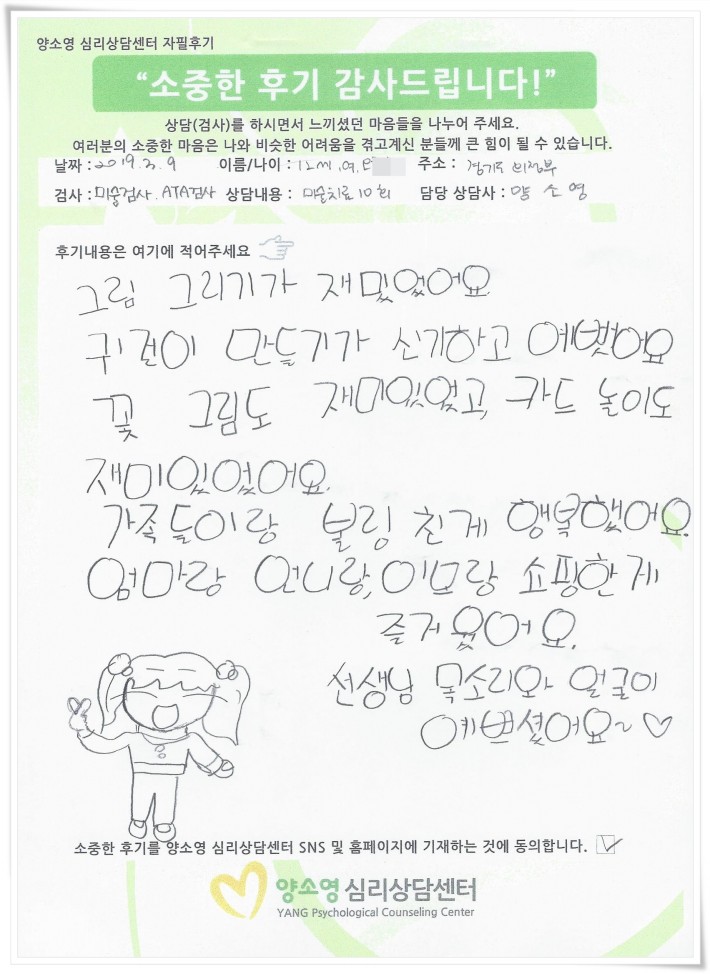 양소영 심리상담센터 자필후기
“소중한 후기 감사드립니다!”
상담(검사)를 하시면서 느끼셨던 마음들을 나누어 주세요.
여러분의 소중한 마음은 나와 비슷한 어려움을 겪고계신 분들께 큰 힘이 될 수 있습니다.
날짜 : 2019.3.9 이름/나이 : 주소 : 경기도 의정부
검사 : 미술검사. ATA검사 상담내용 : 미술치료 10회 담당 상담사 : 양소영
후기내용은 여기에 적어주세요
그림 그리기가 재밌었어요
귀걸이 만들기가 신기하고 예뻤어요
꽃 그림도 재미있었고, 카드 놀이도
재미있었어요.
가족들이랑 볼링 친게 행복했어요.
엄마랑 언니랑, 이모랑 쇼핑한게
즐거웠어요.
선생님 목소리와 얼굴이
예쁘셨어요~ ♡
소중한 후기를 양소영 심리상담센터 SNS 및 홈페이지에 기재하는 것에 동의합니다. ☑
양소영 심리상담센터
YANG Psychological Counseling Center